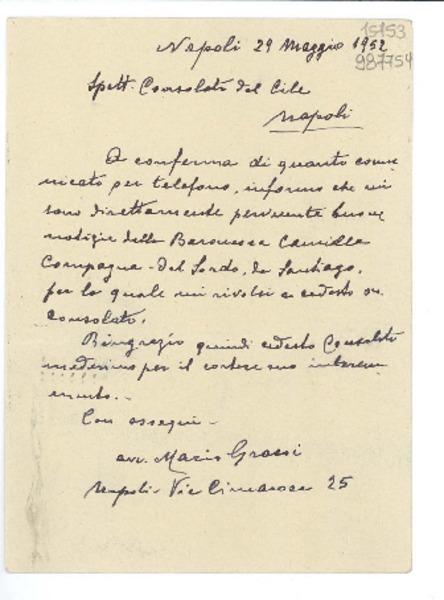 15153
987754
Napoli 29 Maggio 1952
Spett. Consolato del Cile
Napoli
A conferma di quanto comu-
nicato per telefono, informo che mi
sono direttamente pervenute buone
notizie della Baronessa Camilla
Compagna - Del Sordo, da Santiago,
per la quale mi rivolsi a codesto on.
Consolato.
Ringrazio quindi codesto Consolato
medesimo per il cortese suo interessa
mento.-
Con ossequi -
avv. Mario Grassi
Napoli - Via Cimarosa 25